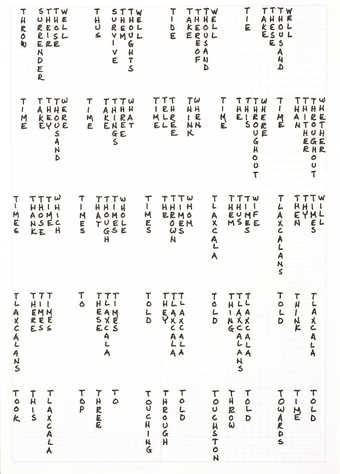 THROW SURRENDER THEIR THOSE WELL
THUS SURVIVE THEM THOUGHTS WELL
TIDE TAKE THOUSAND WELL
TIE TAKE THESE THOUSAND WELL
TIME TAKE THEY THOUSAND WERE
TIME TAKE THINGS THREE WHAT
TIME TELL THREE THINK WHEN
TIME THE THIS THROUGHOUT WHERE
TIME THAN THITHER THROUGHOUT WHETHER
TIMES THANK THOSE TIME WHICH
TIMES THAT THOUGH TIMES WHOLE
TIMES THE THROWN TIMES WHOM
TLAXCALA THEM THUS TIMES WIFE
TLAXCALANS THEN THY TIMES WILL
TLAXCALANS THERE TIMES TIME
TO THESE TLAXCALA TIMES
TOLD THEY TLAXCALA TLAXCALA
TOLD THING TLAXCALANS TLAXCALA
TOLD THINK TLAXCALA
TOOK THIS TLAXCALA
TOP THREE TO
TOUCHING THROUGH TOLD
TOUCHSTON THROW TOLD
TOWARDS TIME TOLD